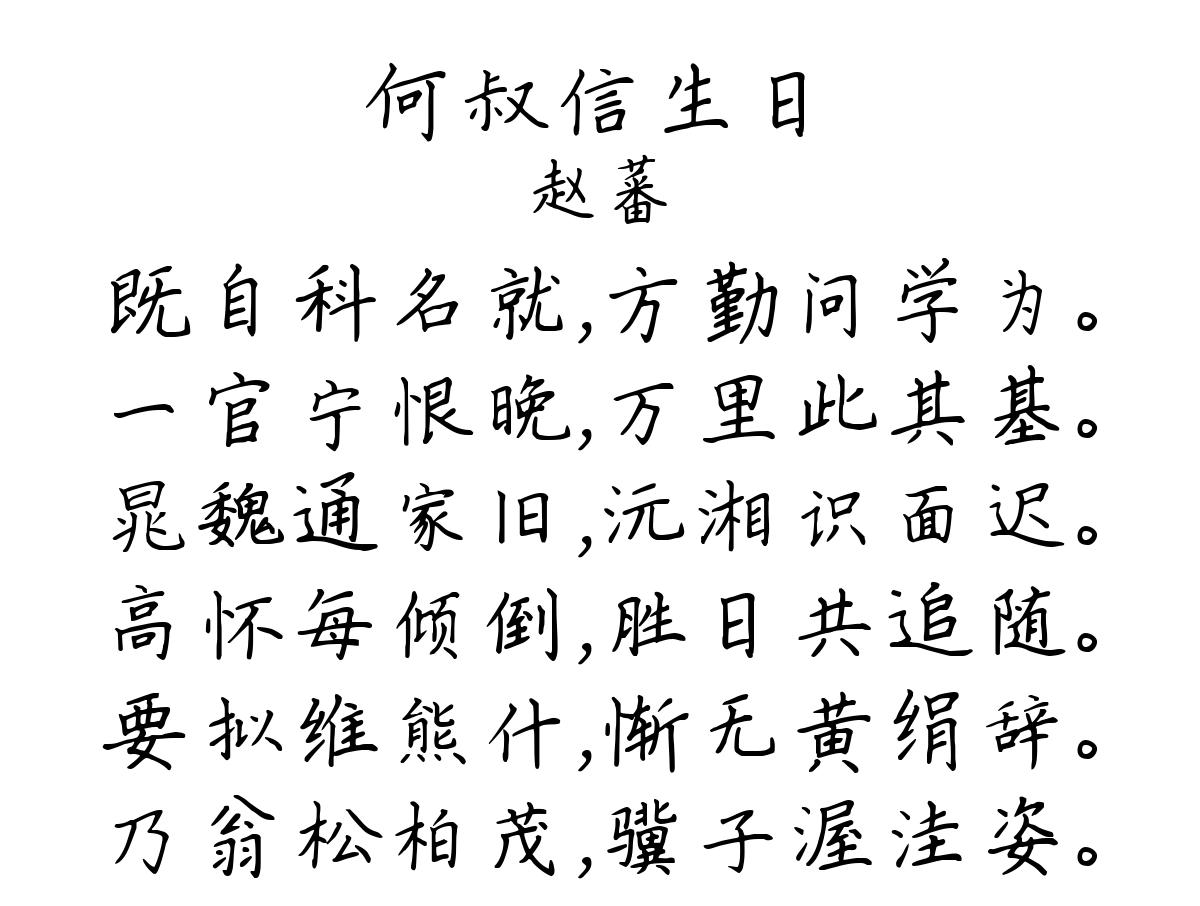 何叔信生日
赵蕃
既自科名就,方勤问学为。
一官宁恨晚,万里此其基。
晁魏通家旧,沅湘识面迟。
高怀每倾倒,胜日共追随。
要拟维熊什,惭无黄绢辞。
乃翁松柏茂,骥子渥洼姿。